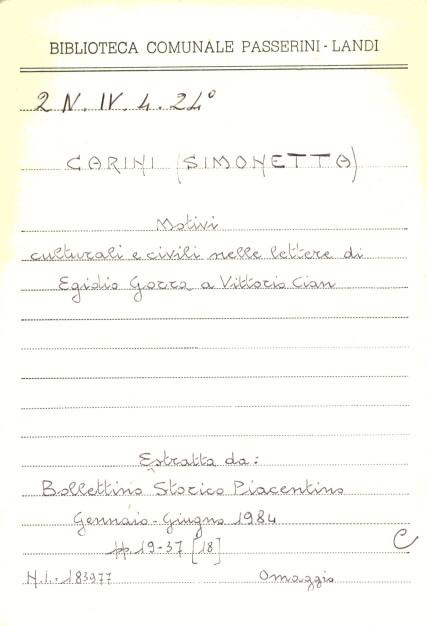 BIBLIOTECA COMUNALE PASSERINI-LANDI
2 N. IV. 4. 24°
CARINI (SIMONETTA)
Motivi
culturali e civili nelle lettere di
Egidio Gorra a Vittorio Cian
Estratta da:
Bollettino Storico Piacentino
Gennaio-Giugno 1984
pp. 19-37 [18]
C
N.I.-183977 Omaggio